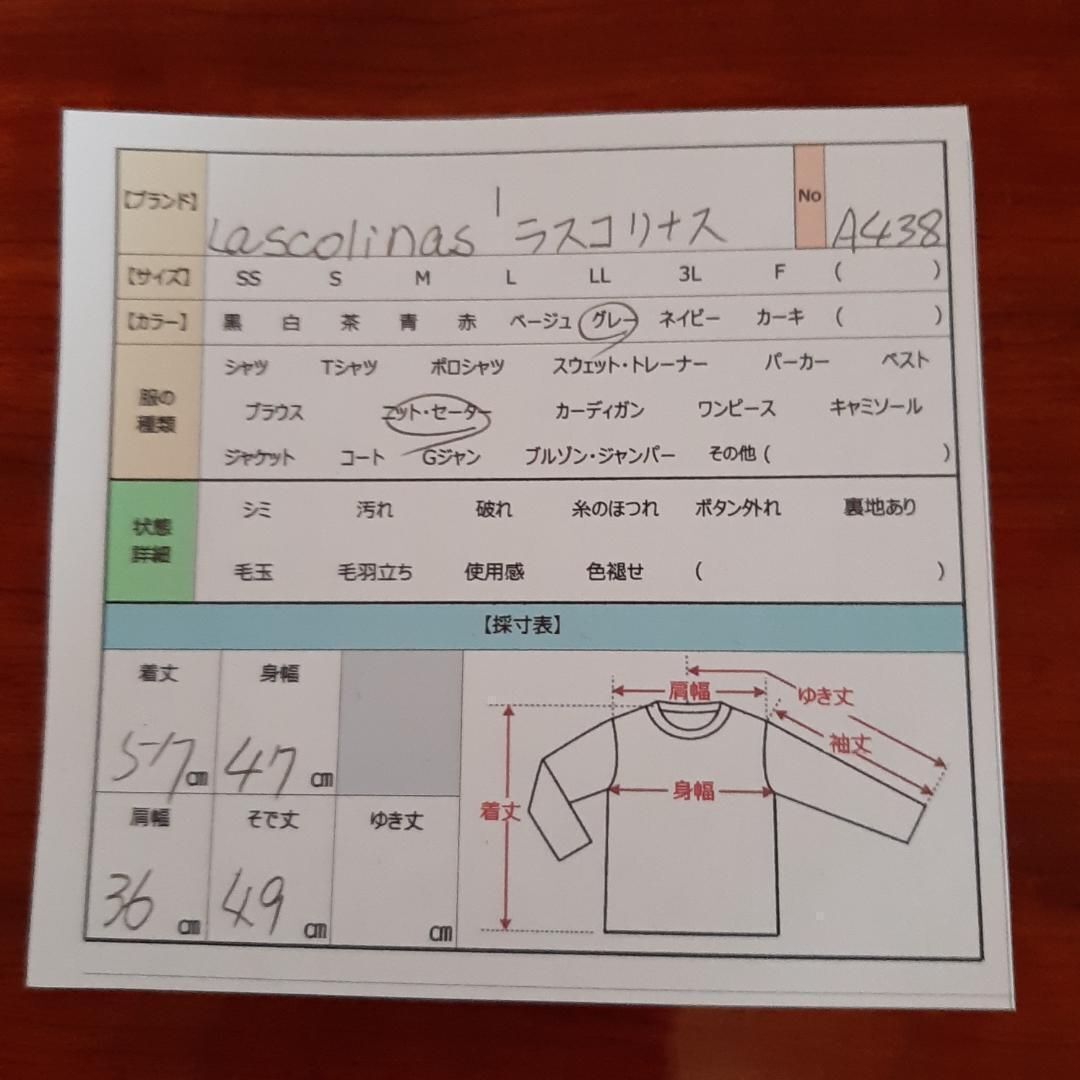 【ブランド】 Lascolinas ラスコリナス No A438
【サイズ】 SS S M L LL 3L F ( )
【カラー】 黒 白 茶 青 赤 ベージュ グレー ネイビー カーキ ( )
服の種類
シャツ Tシャツ ポロシャツ スウェット・トレーナー パーカー ベスト
ブラウス ニット・セーター カーディガン ワンピース キャミソール
ジャケット コート Gジャン ブルゾン・ジャンパー その他 ( )
状態詳細
シミ 汚れ 破れ 糸のほつれ ボタン外れ 裏地あり
毛玉 毛羽立ち 使用感 色褪せ ( )
【採寸表】
着丈 身幅
57cm 47cm
肩幅 そで丈 ゆき丈
36cm 49cm cm
肩幅 ゆき丈
袖丈
身幅
着丈